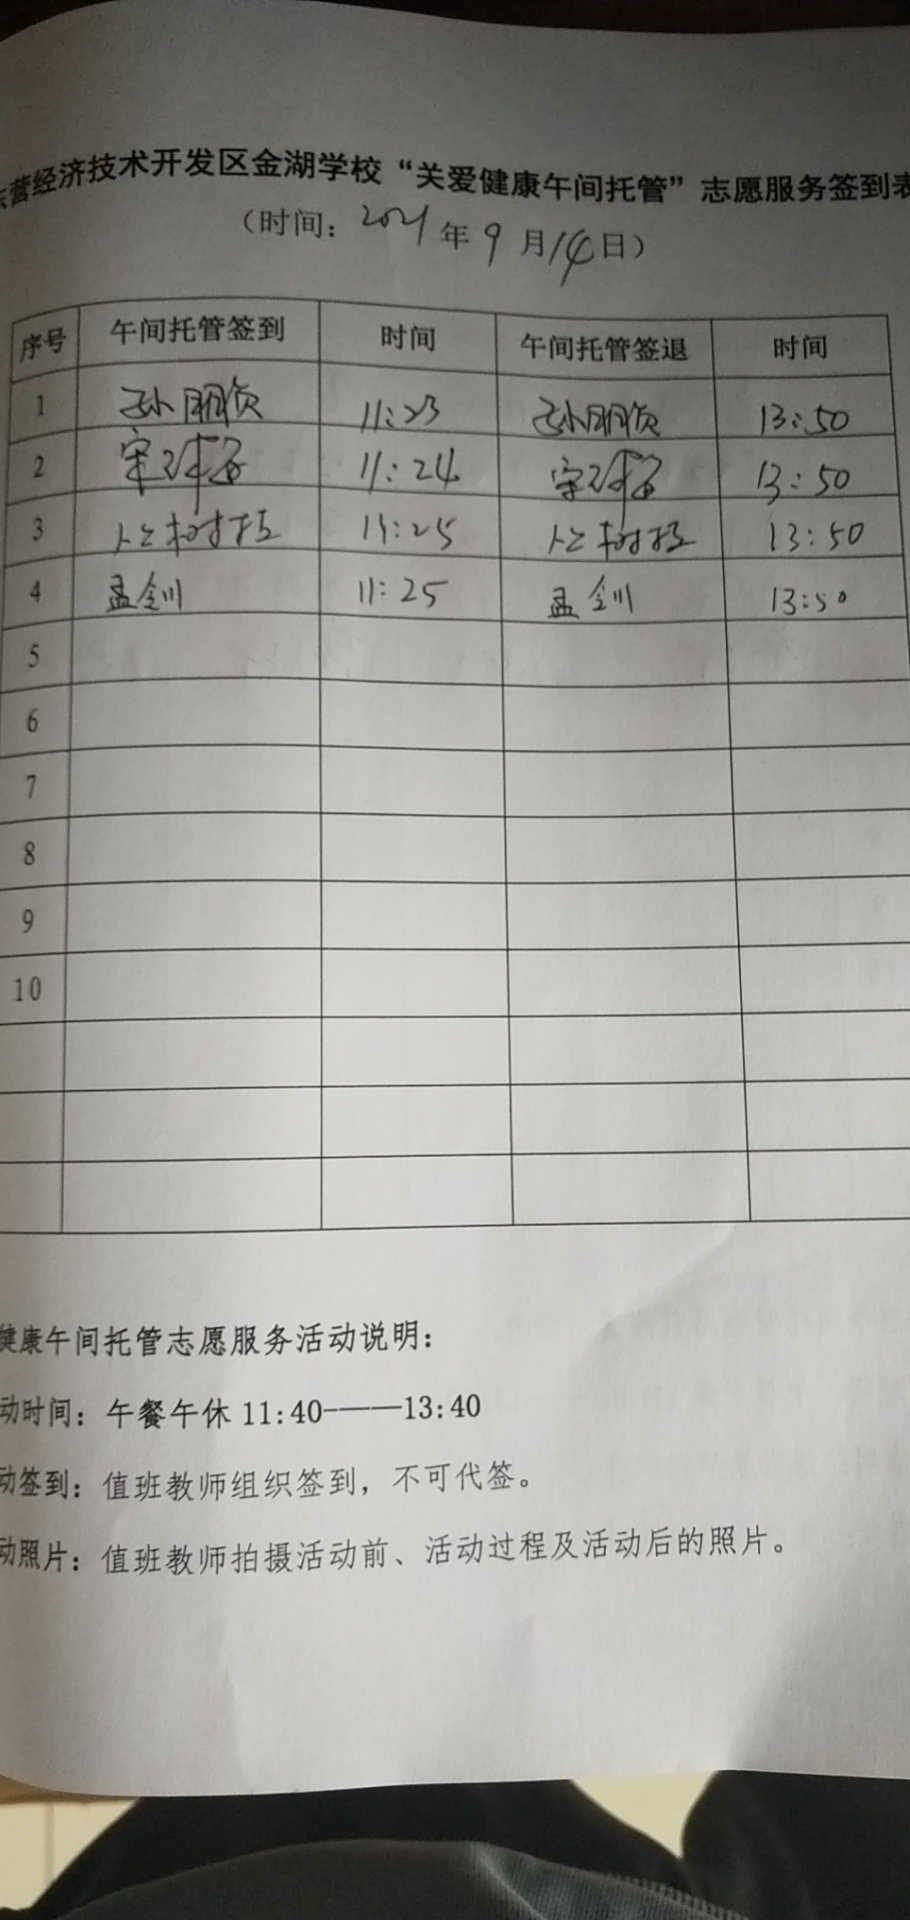 营经济技术开发区金湖学校“关爱健康午间托管”志愿服务签到表
（时间：2021年9月14日）
序号 午间托管签到 时间 午间托管签退 时间
1 孙朋贞 11:23 孙朋贞 13:50
2 宋 11:24 宋 13:50
3 11:25 13:50
4 孟钊 11:25 孟钊 13:50
5
6
7
8
9
10
健康午间托管志愿服务活动说明：
动时间：午餐午休 11:40———13:40
动签到：值班教师组织签到，不可代签。
动照片：值班教师拍摄活动前、活动过程及活动后的照片。